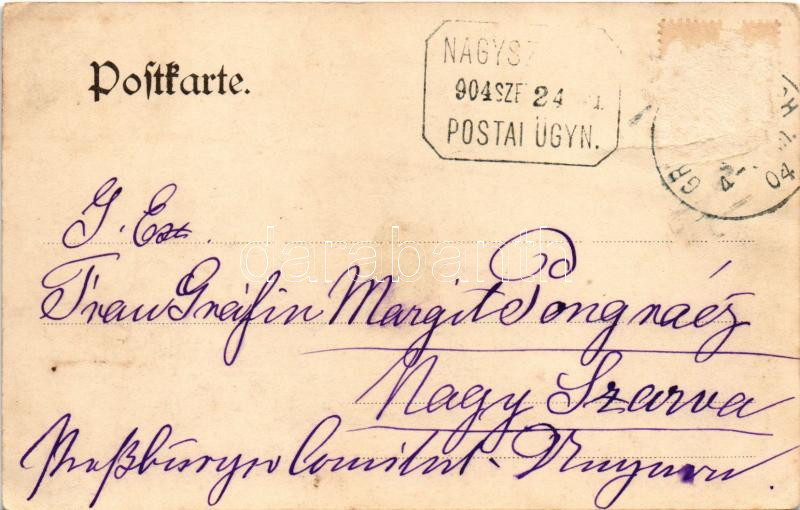 Postkarte.
NAGYSZ
904 SZE 24
POSTAI ÜGYN.
GR
04
J. Ex.
Frau Gräfin Margit Pongrácz
Nagy Szarva
Preßburger Comitat - Ungarn.
darabanth